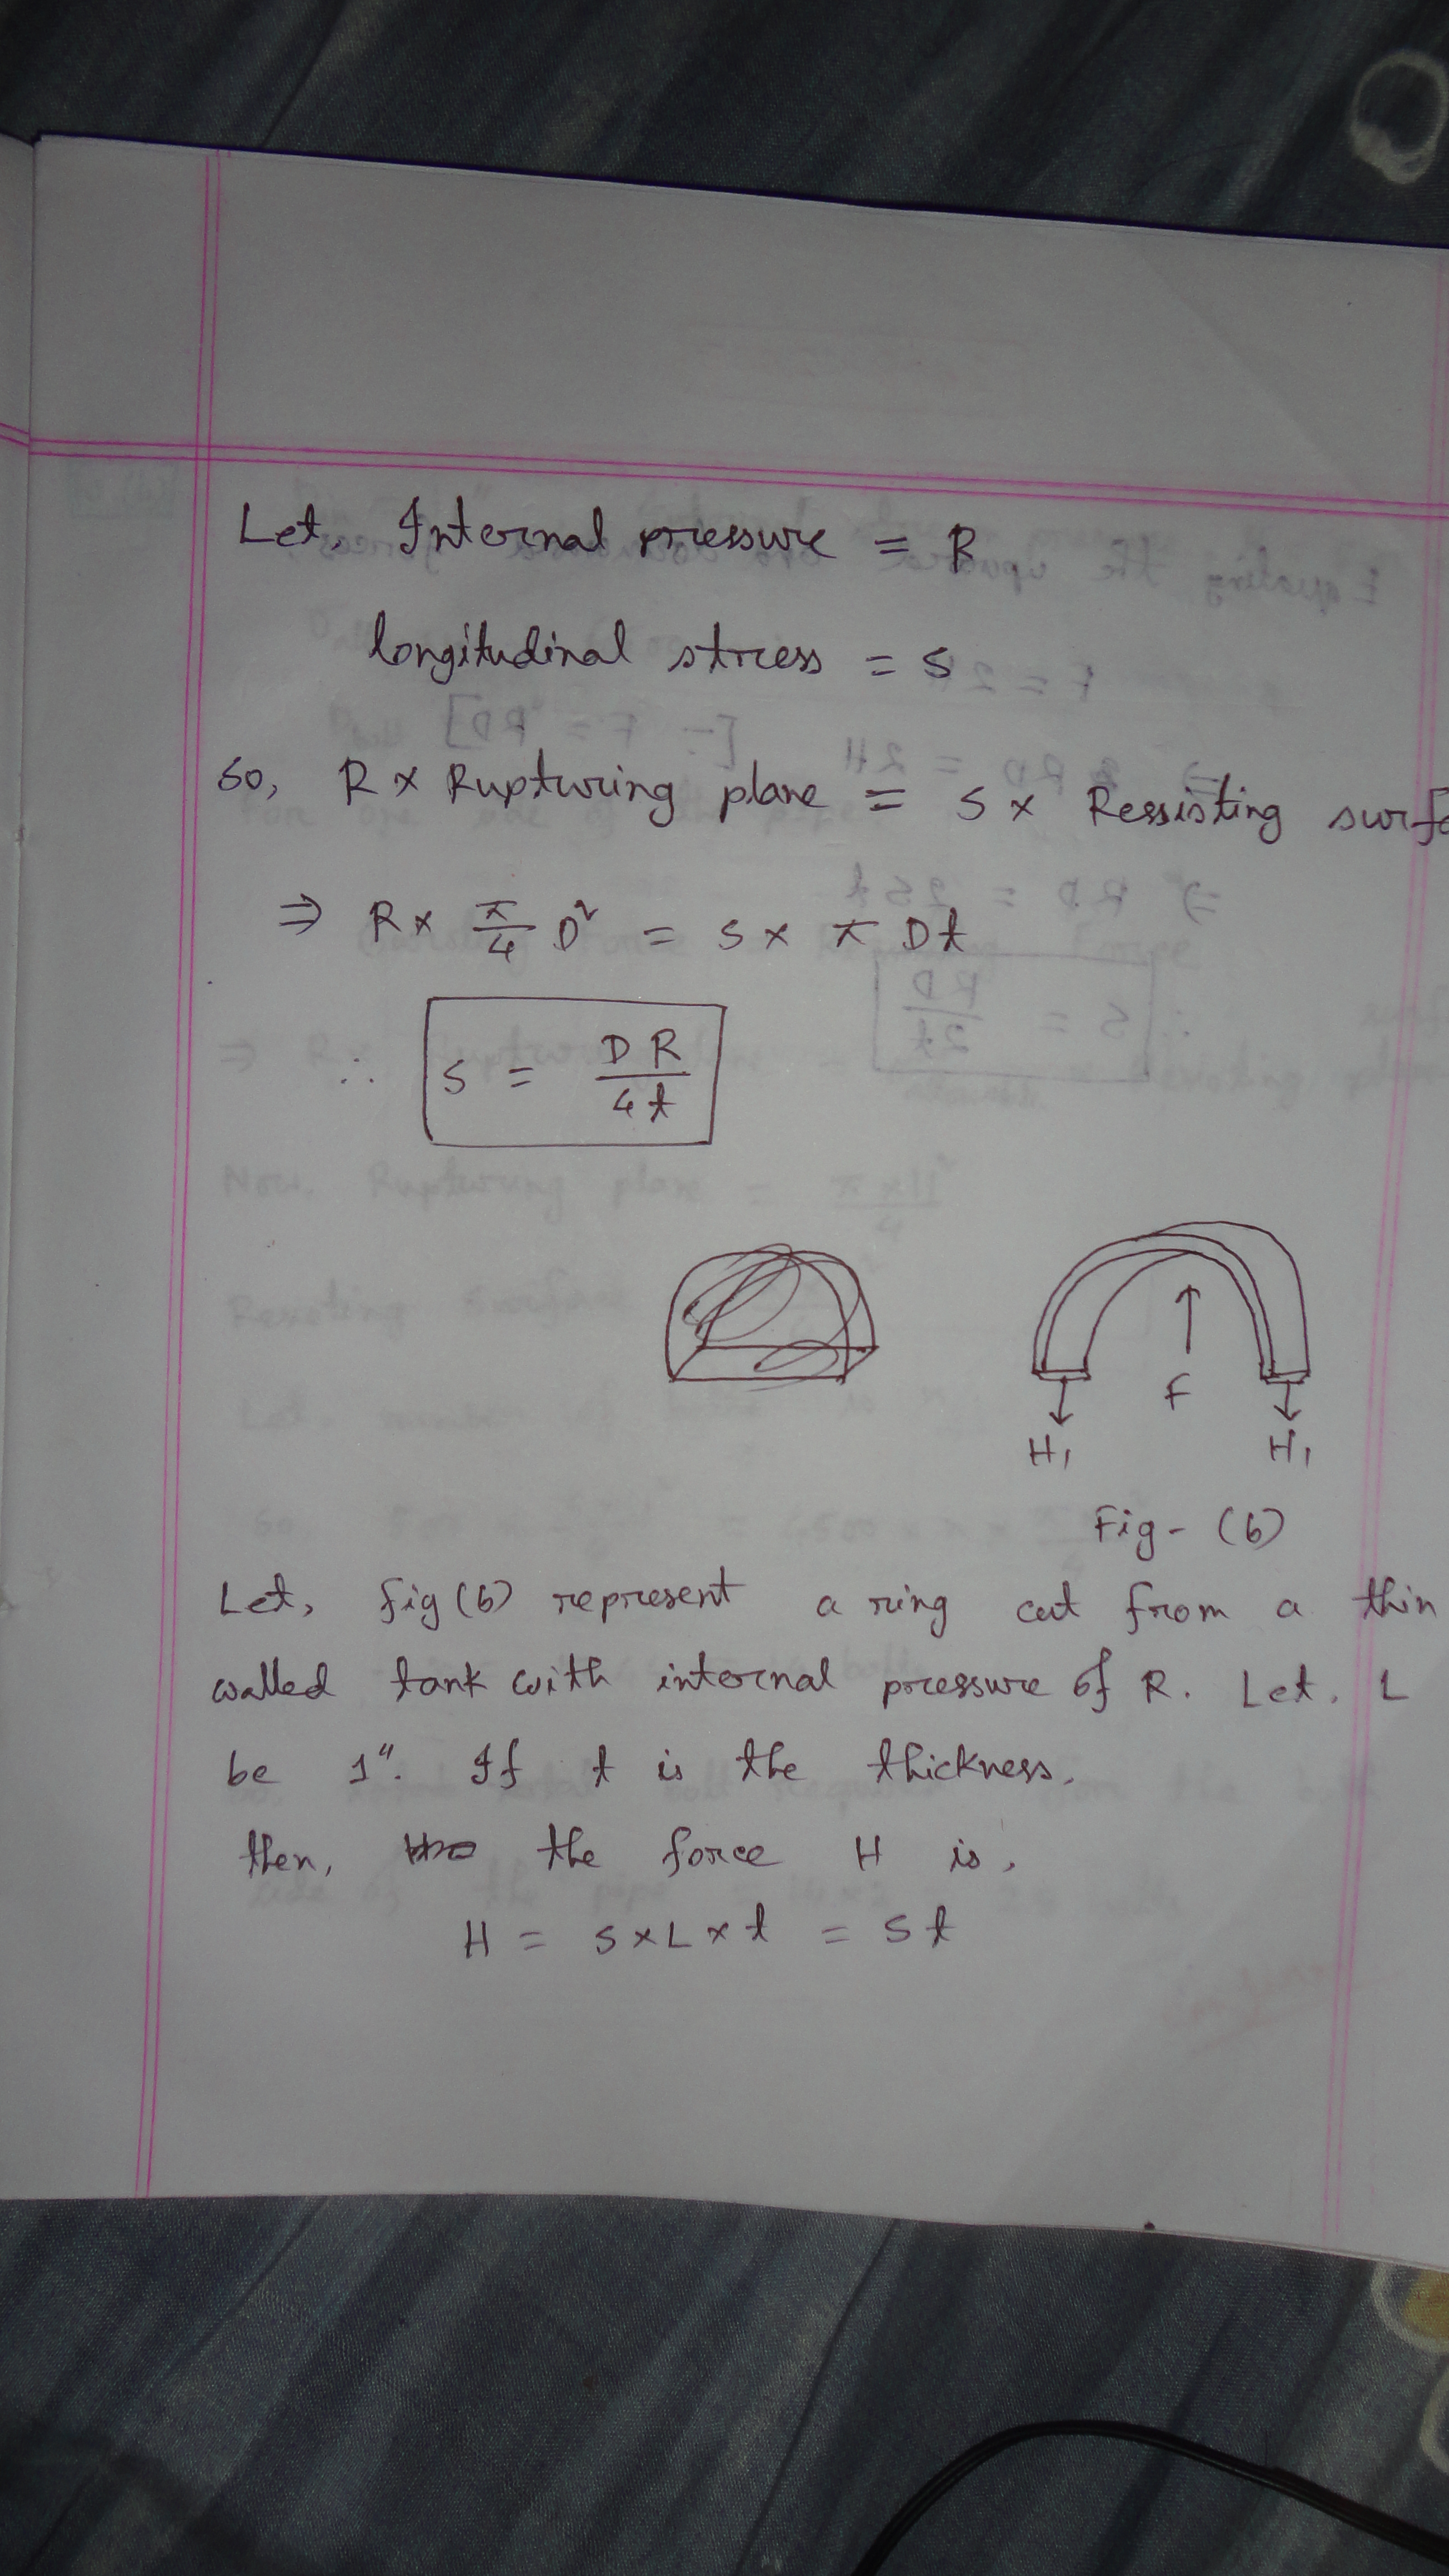 Let, Internal pressure = R
longitudinal stress = s
So, R × Rupturing plane = s × Ressisting surfa
⇒ R × π/4 D² = s × π D t
∴ s = D R / 4t
F
H₁ H₁
Fig - (b)
Let, fig (b) represent a ring cut from a thin
walled tank with internal pressure of R. Let, L
be 1". If t is the thickness,
then, the force H is,
H = s × L × t = st